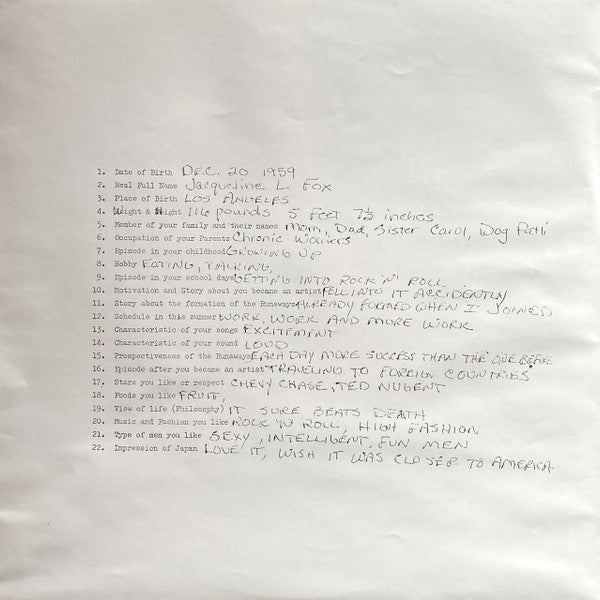 1. Date of Birth DEC. 20 1959
2. Real Full Name Jacqueline L. Fox
3. Place of Birth LOS ANGELES
4. Weight & Hight 116 pounds 5 feet 7½ inches
5. Member of your family and their names Mom, Dad, Sister Carol, Dog Patti
6. Occupation of your Parents Chronic Workers
7. Episode in your childhood GROWING UP
8. Hobby EATING, TALKING,
9. Episode in your school days GETTING INTO ROCK 'N' ROLL
10. Motivation and Story about you became an artist FELL INTO IT ACCIDENTLY
11. Story about the formation of the Runaways ALREADY FORMED WHEN I JOINED
12. Schedule in this summer WORK, WORK AND MORE WORK
13. Characteristic of your songs EXCITEMENT
14. Characteristic of your sound LOUD
15. Prospectiveness of the Runaways EACH DAY MORE SUCCESS THAN THE ONE BEFORE
16. Episode after you became an artist TRAVELING TO FOREIGN COUNTRIES
17. Stars you like or respect CHEVY CHASE, TED NUGENT
18. Foods you like FRUIT,
19. View of life (Philosophy) IT SURE BEATS DEATH
20. Music and Fashion you like ROCK 'N ROLL, HIGH FASHION
21. Type of men you like SEXY, INTELLIGENT, FUN MEN
22. Impression of Japan LOVE IT, WISH IT WAS CLOSER TO AMERICA